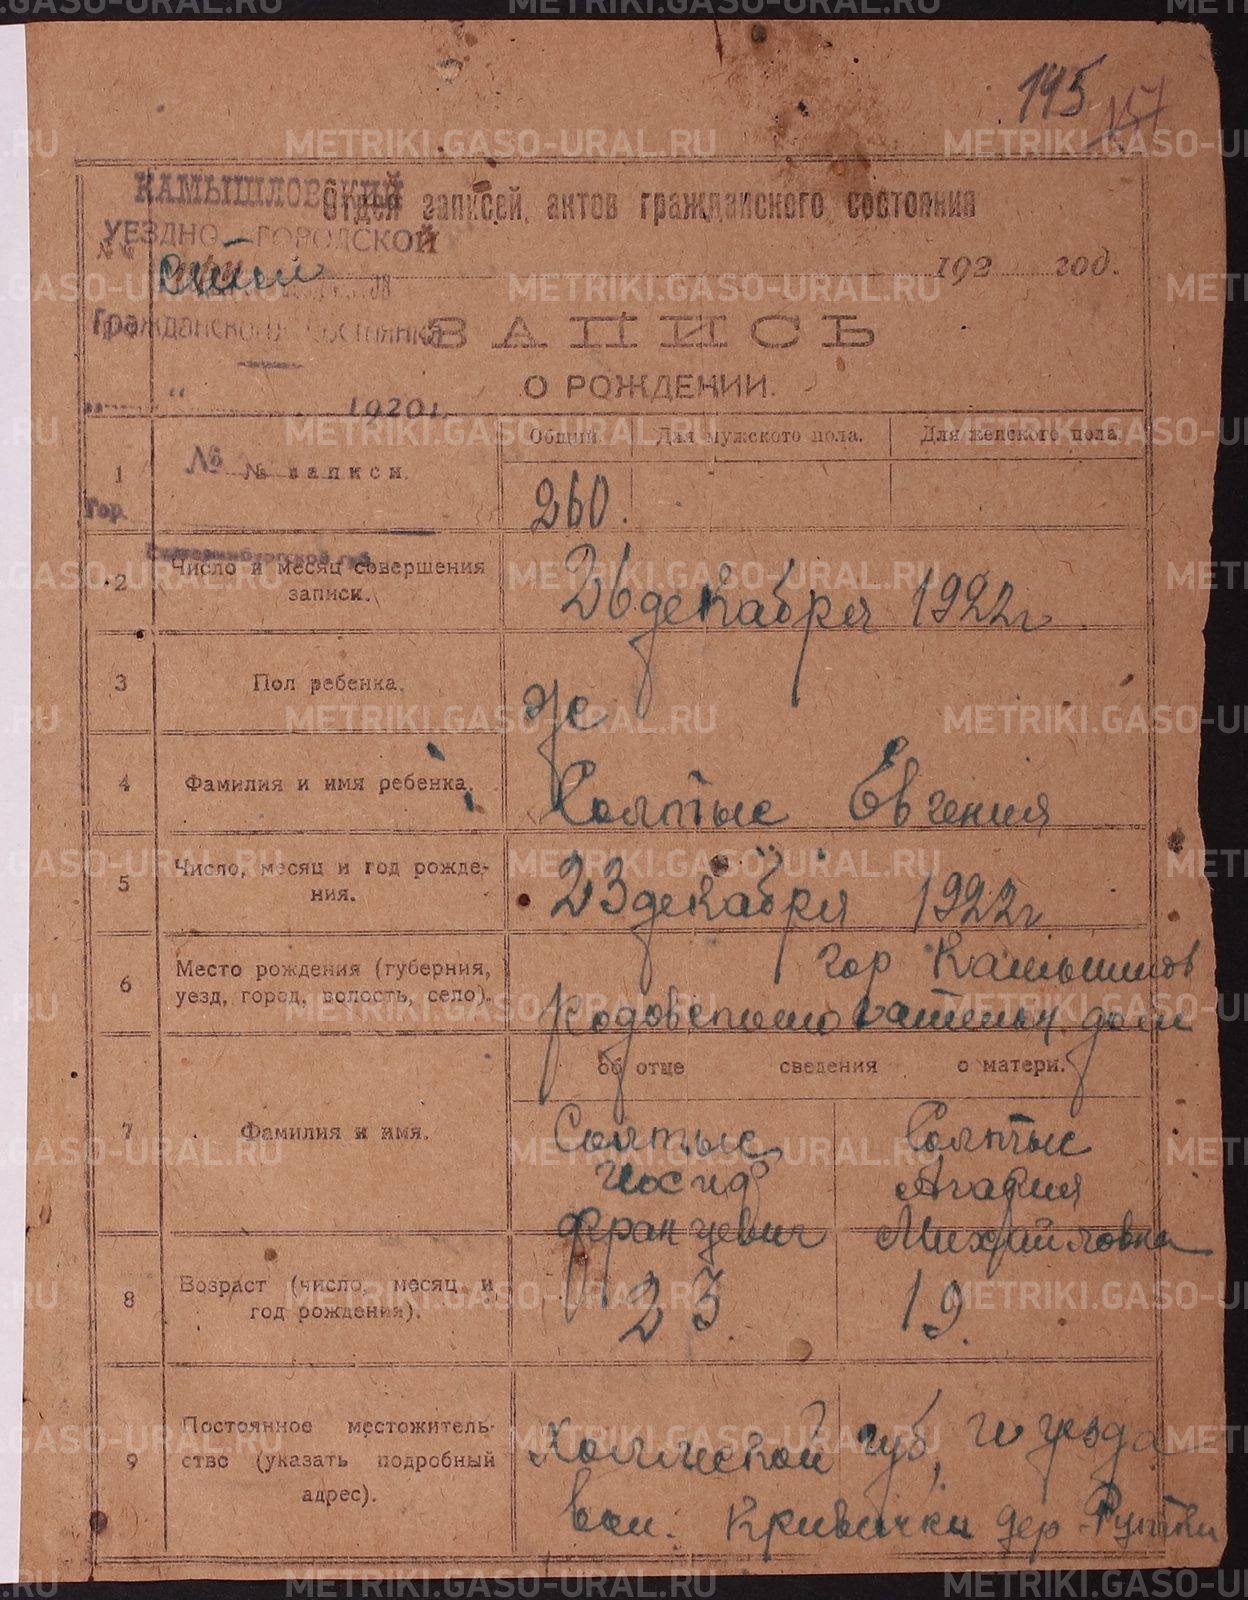 145 157
КАМЫШЛОВСКИЙ
Отдел записей актов гражданского состояния
УЕЗДНО-ГОРОДСКОЙ
192 год.
Гражданского Состояния
ЗАПИСЬ
О РОЖДЕНИИ.
" 1920 г.
Общий. Для мужского пола. Для женского пола.
1 № № записи.
260.
Гор.
Екатеринбургской губ.
2 Число и месяц совершения записи.
26 декабря 1922 г
3 Пол ребенка.
Ж
4 Фамилия и имя ребенка.
Солтыс Евгения
5 Число, месяц и год рождения.
23 декабря 1922 г
6 Место рождения (губерния, уезд, город, волость, село).
гор Камышлов
Родовспомогательн. дом
об отце сведения о матери.
7 Фамилия и имя.
Солтыс Солтыс
Иосиф Агафия
Францевич Михайловна
8 Возраст (число, месяц и год рождения).
23. 19.
9 Постоянное местожительство (указать подробный адрес).
Холмской губ, и уезда
вол. Кривички дер.